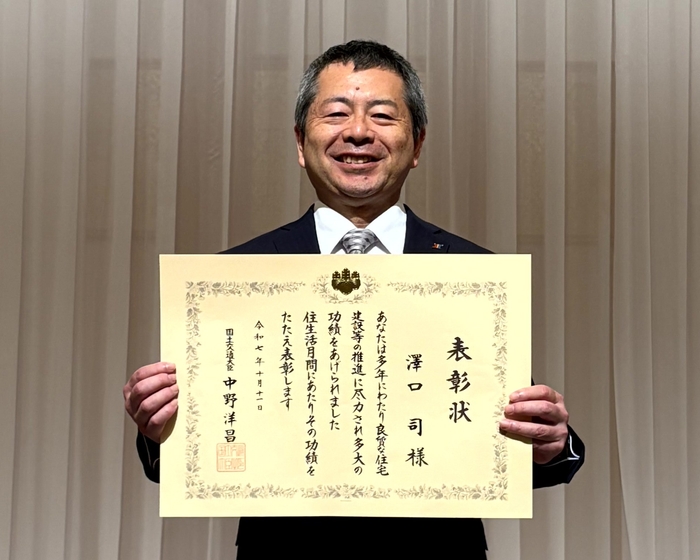 表彰状
澤口司様
あなたは多年にわたり良質な住宅
建設等の推進に尽力され多大の
功績をあげられました
住生活月間にあたりその功績を
たたえ表彰します
令和七年十月十一日
国土交通大臣 中野洋昌